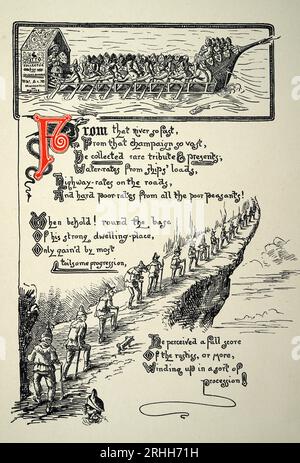 From that river so fast,
From that champaign so vast,
He collected rare tribute & presents;
Water-rates from ships' loads,
Highway-rates on the roads,
And hard poor rates from all the poor peasants!
When behold! round the base
Of his strong dwelling-place,
Only gain'd by most
toilsome progression,
He perceived a full score
Of the rustics, or more,
Winding up in a sort of
procession!